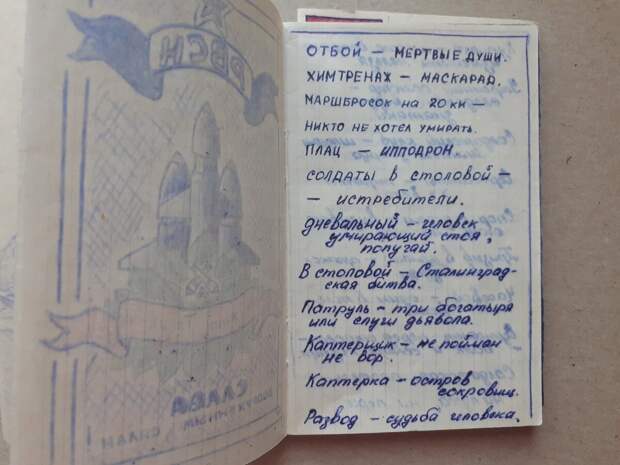 РВСН
СЛАВА
ОТБОЙ – МЕРТВЫЕ ДУШИ.
ХИМТРЕНАЖ – МАСКАРАД.
МАРШБРОСОК НА 20 КМ –
НИКТО НЕ ХОТЕЛ УМИРАТЬ.
ПЛАЦ – ИППОДРОМ.
СОЛДАТЫ В СТОЛОВОЙ –
– ИСТРЕБИТЕЛИ.
ДНЕВАЛЬНЫЙ – ЧЕЛОВЕК
УМИРАЮЩИЙ СТОЯ,
ПОПУГАЙ.
В столовой – Сталинград-
ская битва.
Патруль – три богатыря
или слуги дьявола.
Каптерщик – не пойман
не вор.
Каптерка – остров
сокровищ.
Развод – судьба человека.